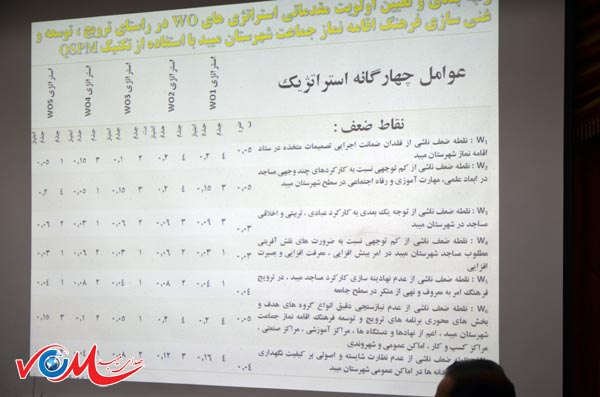 بندی و تعیین اولویت مقدماتی استراتژی های WO در راستای ترویج ، توسعه و
غنی سازی فرهنگ اقامه نماز جماعت شهرستان میبد با استفاده از تکنیک QSPM
عوامل چهارگانه استراتژیک
استراتژی WO1 استراتژی WO2 استراتژی WO3 استراتژی WO4 استراتژی WO5
نقاط ضعف :
W₁ : نقطه ضعف ناشی از فقدان ضمانت اجرایی تصمیمات متخذه در ستاد
اقامه نماز شهرستان میبد
۰,۰۵ ۴ ۰,۲ ۴ ۰,۲ ۲ ۰,۱ ۳ ۰,۱۵ ۱ ۰,۰۵
W₂ : نقطه ضعف ناشی از کم توجهی نسبت به کارکردهای چند وجهی مساجد
در ابعاد علمی، مهارت آموزی و رفاه اجتماعی در سطح شهرستان میبد
۰,۰۵ ۳ ۰,۱۵ ۴ ۰,۲ ۳ ۰,۱۵ ۱ ۰,۰۵ ۴ ۰,۲
W₃ : نقطه ضعف ناشی از توجه یک بعدی به کارکرد عبادی ، تربیتی و اخلاقی
مساجد در شهرستان میبد
۰,۰۳ ۳ ۰,۰۹ ۳ ۰,۰۹ ۲ ۰,۰۶ ۱ ۰,۰۳ ۲ ۰,۰۶
W₄ : نقطه ضعف ناشی از کم توجهی نسبت به ضرورت های نقش آفرینی
مطلوب مساجد شهرستان میبد در امر بینش افزایی ، معرفت افزایی و بصیرت
افزایی
۰,۰۳ ۱ ۰,۰۳ ۲ ۰,۰۶ ۱ ۰,۰۳ ۲ ۰,۰۶ ۱ ۰,۰۳
W₅ : نقطه ضعف ناشی از عدم نهادینه سازی کارکرد مساجد میبد ، در ترویج
فرهنگ امر به معروف و نهی از منکر در سطح جامعه
۰,۰۴ ۱ ۰,۰۴ ۲ ۰,۰۸ ۱ ۰,۰۴ ۲ ۰,۰۸ ۱ ۰,۰۴
نقطه ضعف ناشی از عدم نیازسنجی دقیق انواع گروه های هدف و
بخش های محوری برنامه های ترویج و توسعه فرهنگ اقامه نماز جماعت
شهرستان میبد ، اعم از نهادها و دستگاه ها ، مراکز آموزشی ، مراکز صنعتی ،
مراکز کسب و کار ، اماکن عمومی و شهروندی
۰,۰۵ ۴ ۰,۲ ۴ ۰,۲ ۱ ۰,۰۵ ۲ ۰,۱ ۳ ۰,۱۵
نقطه ضعف ناشی از عدم نظارت شایسته و اصولی بر کیفیت نگهداری
خانه ها در اماکن عمومی شهرستان میبد
۰,۰۴ ۴ ۰,۱۶ ۳ ۰,۱۲ ۲
VOM
صدای میبد